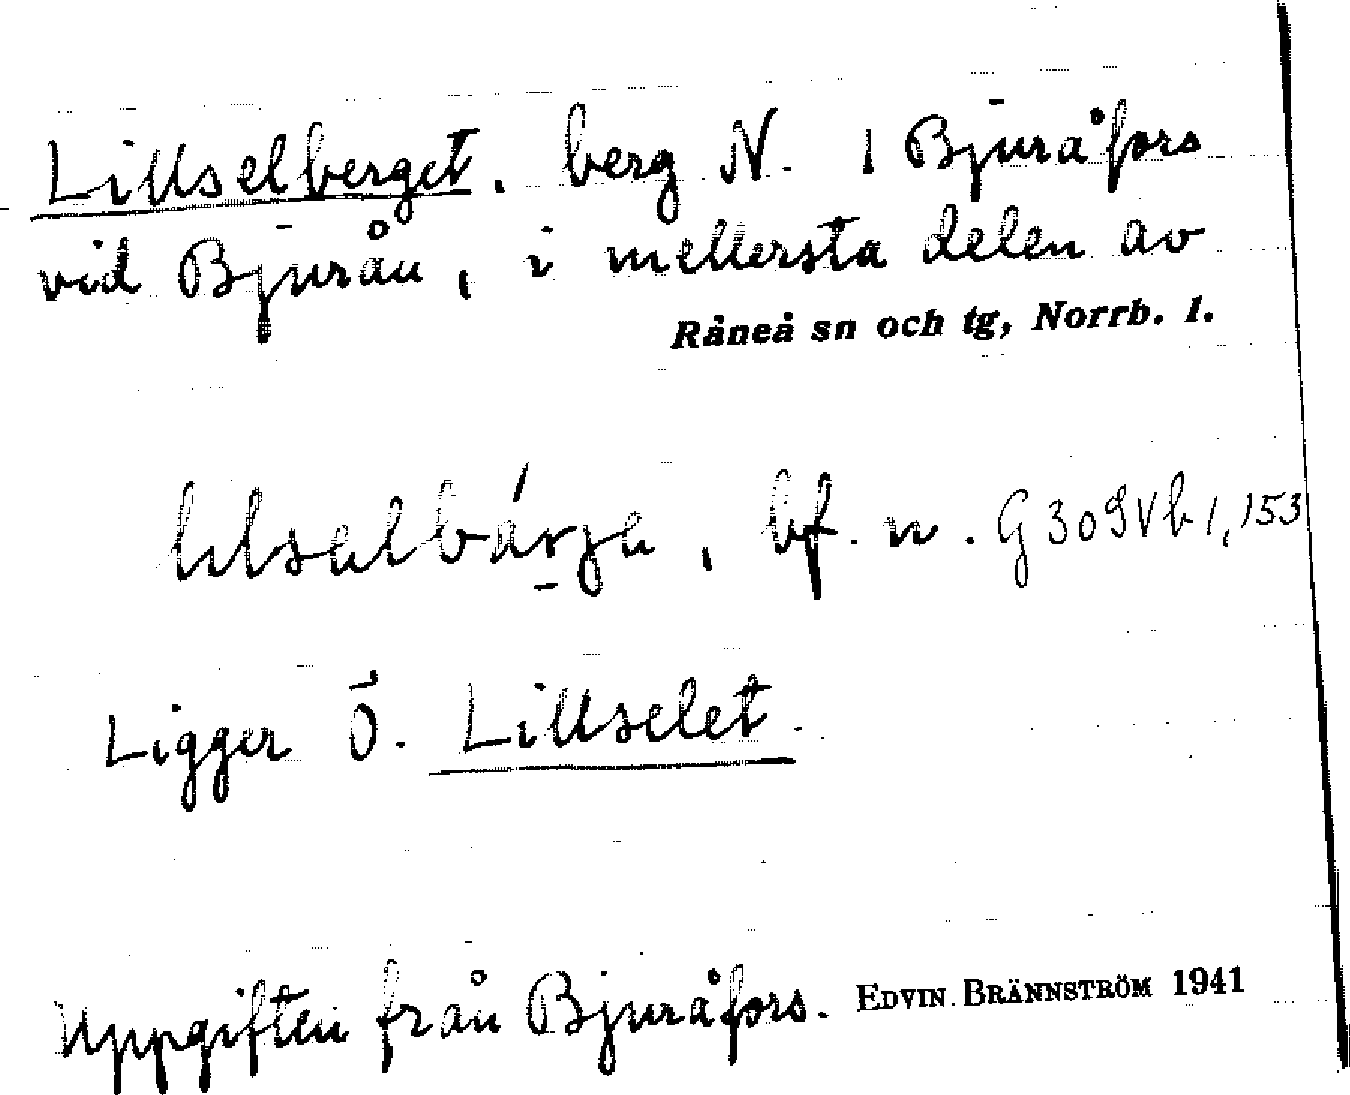 Lillselberget, berg N. i Bjuråfors
vid Bjurån, i mellersta delen av
Råneå sn och tg, Norrb. l.
bf. n. G 309 Vb 1, 153
Ligger Ö. Lillselet.
Uppgiften från Bjuråfors. EDVIN BRÄNNSTRÖM 1941